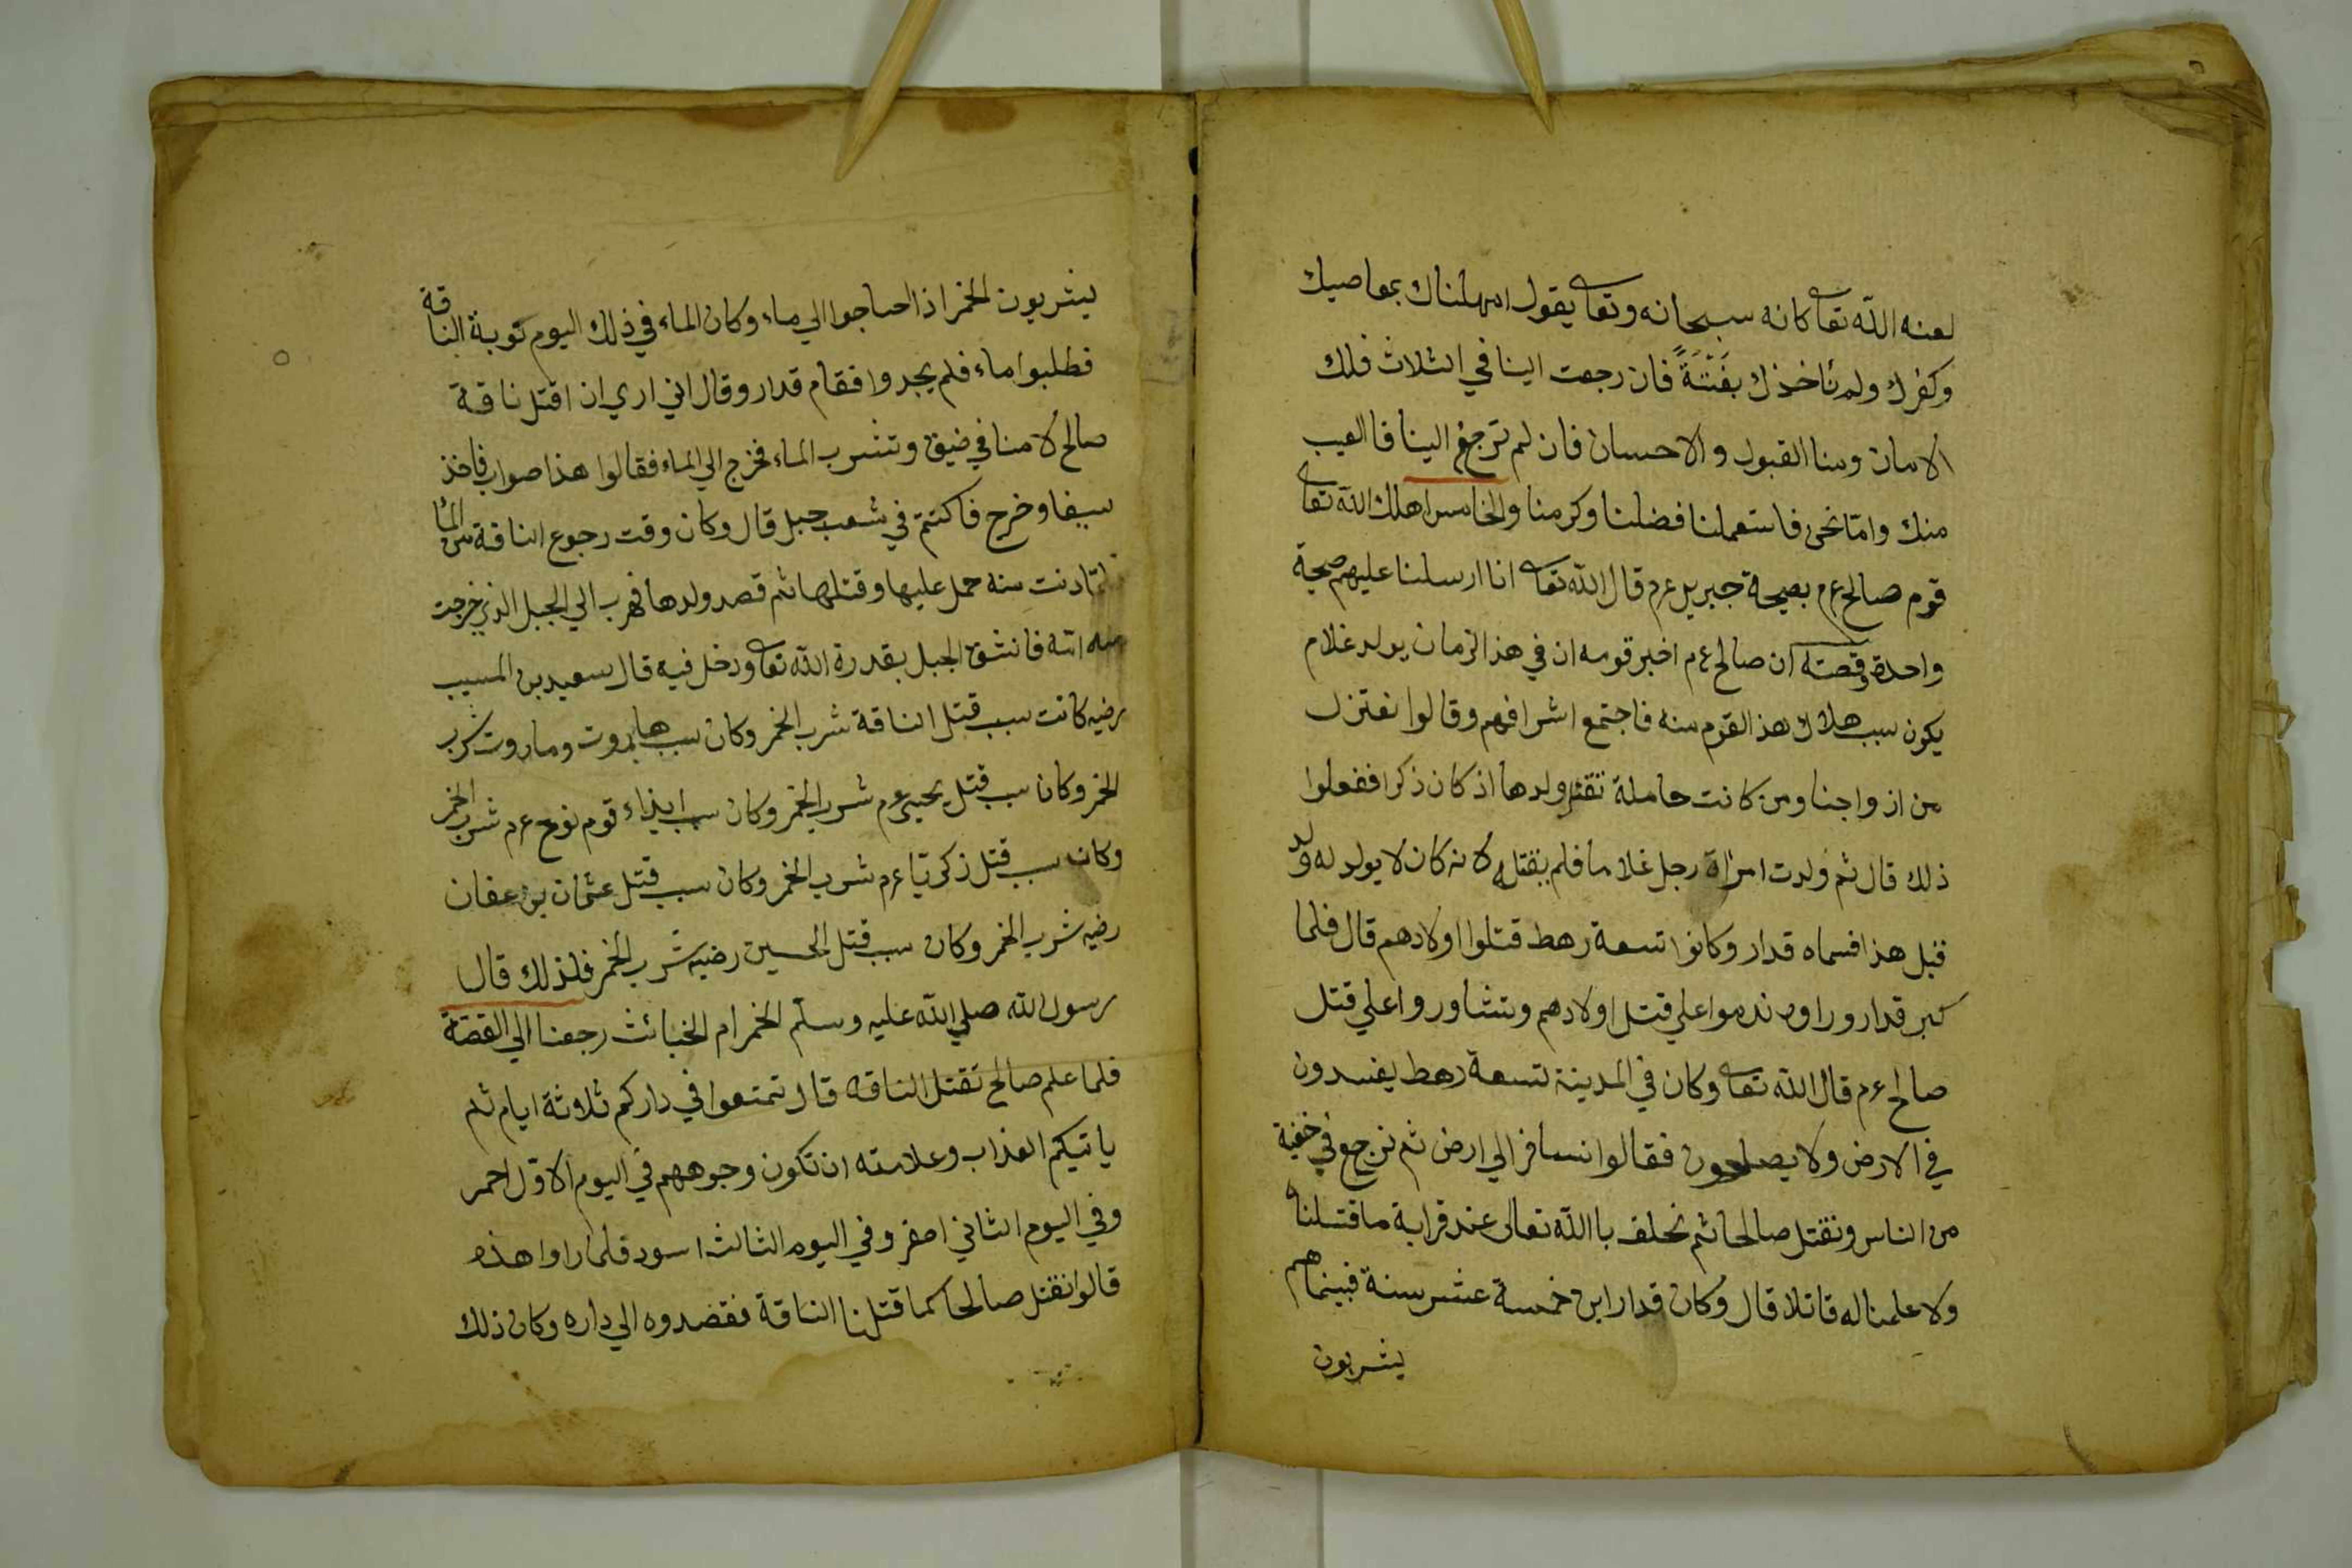 لعنه الله تعا كانه سبحانه وتعا يقول امهلناك بمعاصيك
وكفرك ولم نأخذك بغتتةً فان رجعت الينا في الثلاث فلك
الامان ومنا القبول والاحسان فان لم ترجع الينا فالعيب
منك وامّا نحن فاستعملنا فضلنا وكرمنا والخامس اهلك الله تعا
قوم صالح ع م بصيحة جبريل ع م قال الله تعا انا ارسلنا عليهم صيحة
واحدة وقصته ان صالح ع م اخبر قومه ان في هذ الزمان يولد غلام
يكون سبب هلاك هذ القوم منه فاجتمع اشرافهم وقالوا نعتزل
من ازواجنا ومن كانت حاملة نقتل ولدها اذ كان ذكرا ففعلوا
ذلك قال ثم ولدت امراة رجل غلاما فلم يقتله لانه كان لا يولد له ولد
قبل هذا فسماه قدار وكانوا تسعة رهط قتلوا اولادهم قال فلما
كبر قدار وراوه ندموا علي قتل اولادهم وتشاوروا علي قتل
صالح ع م قال الله تعا وكان في المدينة تسعة رهط يفسدون
في الارض ولا يصلحون فقالوا نسافر الي ارض ثم نرجع في خفية
من الناس ونقتل صالحا ثم نحلف باالله تعالى عند قرابة ما قتلناه
ولا علمنا له قاتلا قال وكان قدار ابن خمسة عشر سنة فبينما هم
يشربون
يشربون الخمر اذ احتاجوا الي ماء وكان الماء في ذلك اليوم نوبة الناقة
فطلبوا ماء فلم يجدوا فقام قدار وقال اني اري ان اقتل ناقة
صالح لامنا في ضيق وتشرب الماء فخرج الي الماء فقالوا هذا صواب فاخذ
سيفا وخرج فاكتتم في شعب جبل قال وكان وقت رجوع الناقة من الماء
فلمّا دنت منه حمل عليها وقتلها ثم قصد ولدها فهرب الي الجبل الذي خرجت
منه امه فانشق الجبل بقدرة الله تعا ودخل فيه قال سعيد بن المسيب
رضيه كانت سبب قتل الناقة شرب الخمر وكان سبب هاروت وماروت شرب
الخمر وكان سبب قتل يحيى ع م شرب الخمر وكان سبب ايذاء قوم نوح ع م شرب الخمر
وكان سبب قتل زكريّا ع م شرب الخمر وكان سبب قتل عثمان بن عفان
رضيه شرب الخمر وكان سبب قتل الحسين رضيه شرب الخمر فلذلك قال
رسول الله صلي الله عليه وسلم الخمر ام الخبائث رجعنا الي القصّة
فلما علم صالح تقتل الناقه قال تمتعوا في داركم ثلاثة ايام ثم
ياتيكم العذاب وعلامته ان تكون وجوههم في اليوم الاوّل احمر
وفي اليوم الثاني اصفر وفي اليوم الثالث اسود فلما راوا هذه
قالوا نقتل صالحا كما قتلنا الناقة فقصدوه الي داره وكان ذلك